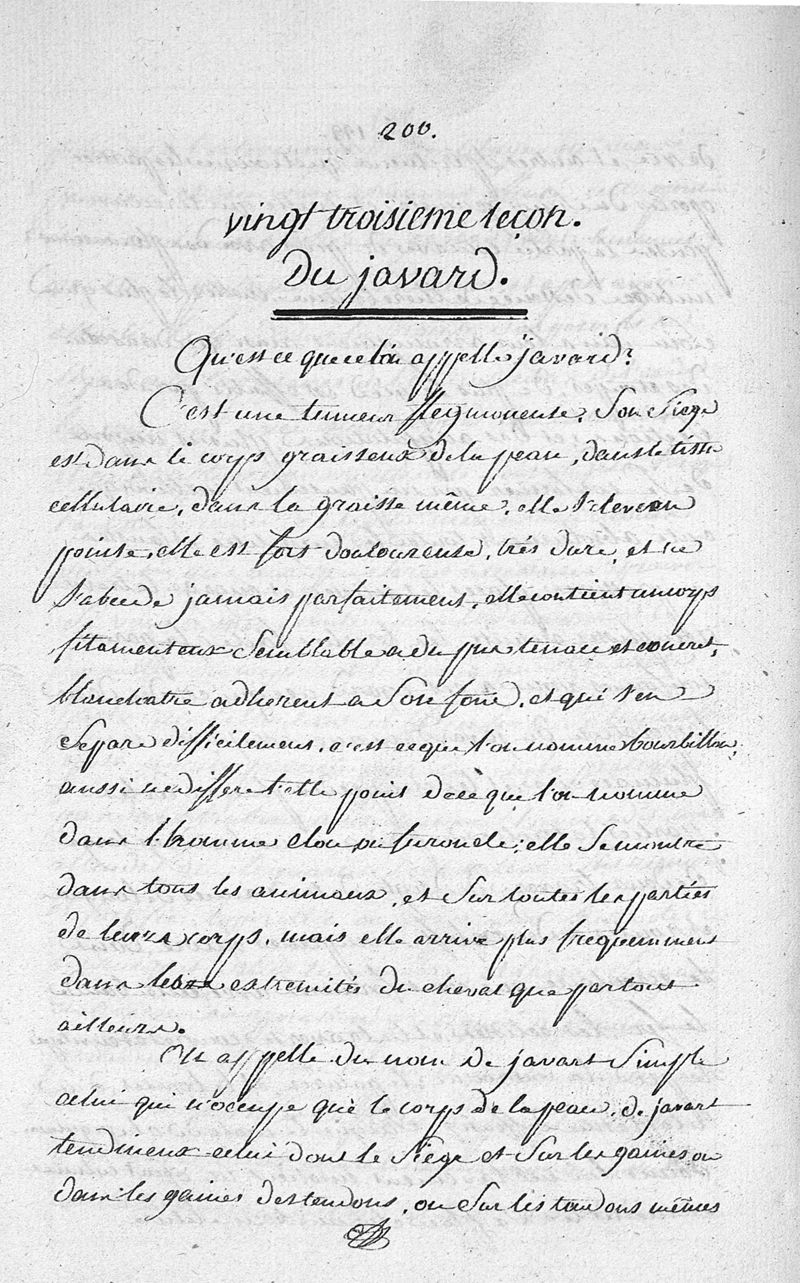 200.
vingt troisieme leçon.
Du javard.
Qu'est ce que cela appelle javard?
C'est une tumeur flegmoneuse, Son Siége
est dans le corps graisseux de la peau, dans le tissu
cellulaire, dans la graisse même, elle S'eleve en
pointe, elle est fort douloureuse, trés dure, et ne
s'abcede jamais parfaitement, elle contient un corps
filamenteux Semblable a du pus tenace et concret,
blanchatre adherent a Son fond, et qui s'en
Separe difficilement, c'est ce que l'on nomme bourbillon,
aussi ne differe t'elle point de ce que l'on nomme
dans l'homme clou ou furoncle; elle Se montre
dans tous les animaux, et Sur toutes les parties
de leurs corps, mais elle arrive plus frequemment
dans les extremités du cheval que partout
ailleurs.
On appelle du nom de javart Simple
celui qui n'occupe que le corps de la peau, de javart
tendineux celui dont le Siége est Sur les gaines ou
dans les gaines des tendons, ou Sur les tendons mêmes